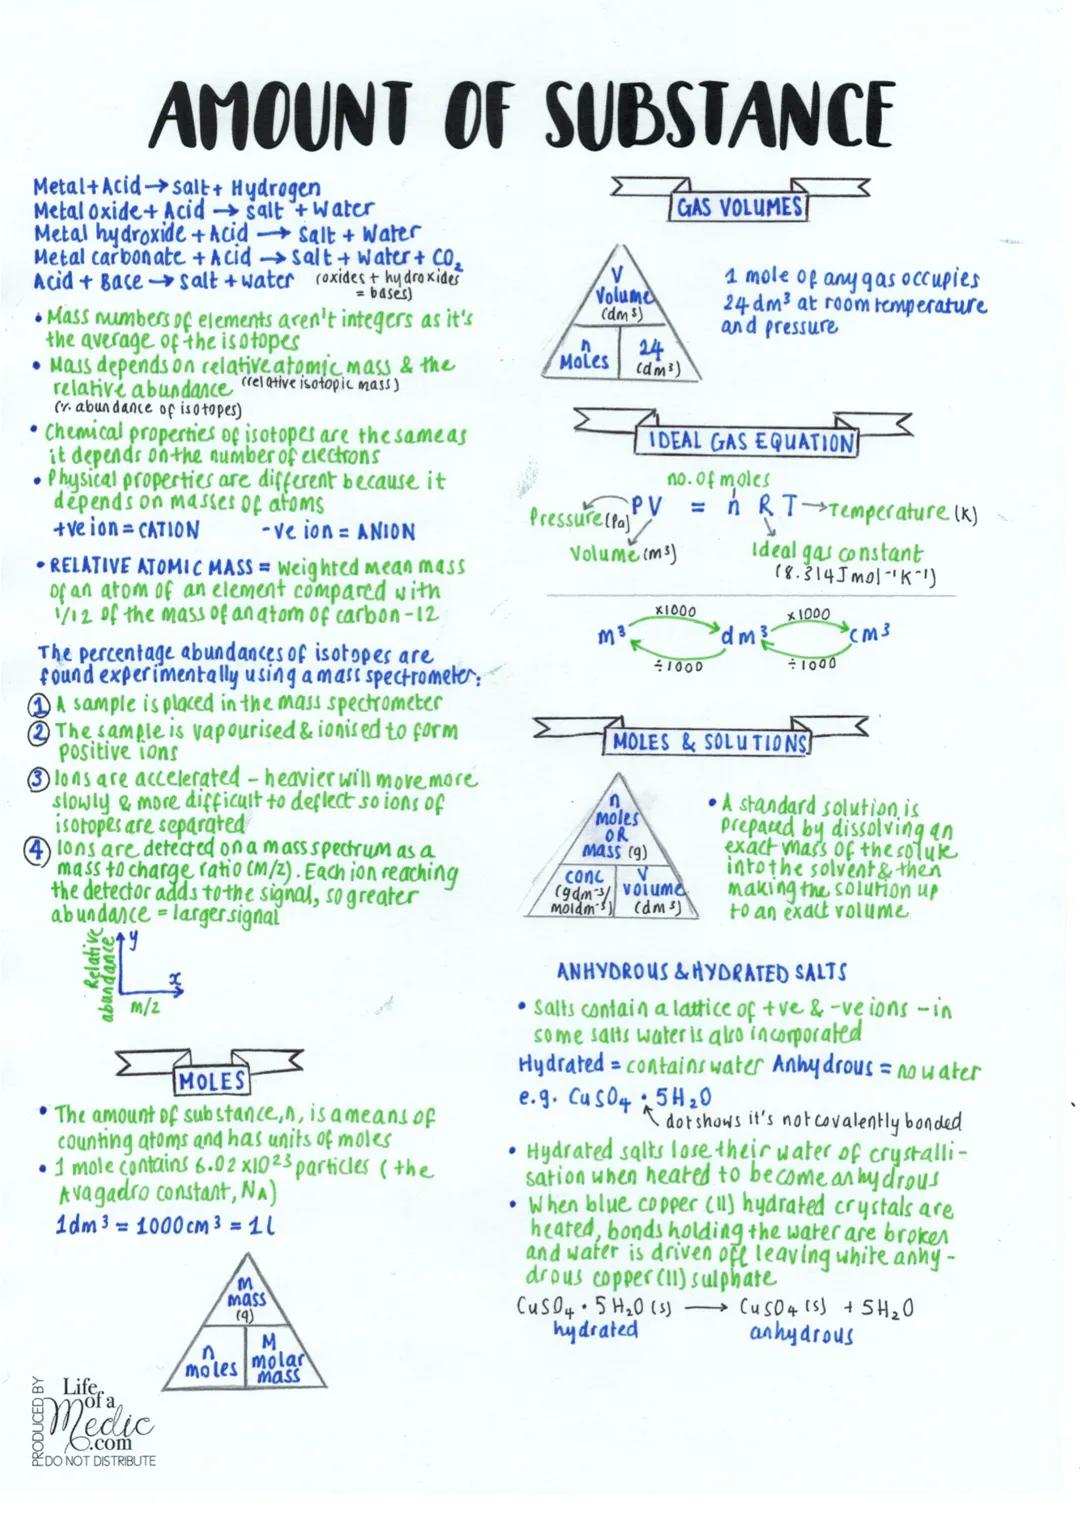 AMOUNT OF SUBSTANCE
Metal+Acid→salt+ Hydrogen
Metal oxide+ Acid → salt + Water
Metal hydroxide + Acid → Salt + Water
Metal carbonate + Acid → Salt + Water + CO₂
Acid + Base → Salt + water (oxides + hydroxides
= bases)
• Mass numbers of elements aren't integers as it's
the average of the isotopes
• Mass depends on relative atomic mass & the
relative abundance (relative isotopic mass)
(% abundance of isotopes)
• Chemical properties of isotopes are the same as
it depends on the number of electrons
• Physical properties are different because it
depends on masses of atoms
+ve ion = CATION -ve ion = ANION
• RELATIVE ATOMIC MASS = weighted mean mass
of an atom of an element compared with
1/12 of the mass of an atom of carbon-12
The percentage abundances of isotopes are
found experimentally using a mass spectrometer:
① A sample is placed in the mass spectrometer
② The sample is vapourised & ionised to form
positive ions
③ Ions are accelerated - heavier will move more
slowly & more difficult to deflect so ions of
isotopes are separated
④ Ions are detected on a mass spectrum as a
mass to charge ratio (M/Z). Each ion reaching
the detector adds to the signal, so greater
abundance = larger signal
Relative
abundance
y
x
m/z
MOLES
• The amount of substance, n, is a means of
counting atoms and has units of moles
• 1 mole contains 6.02 x10²³ particles (the
Avagadro constant, NA)
1dm³ = 1000cm³ = 1l
m
mass
(g)
n
moles
M
molar
mass
PRODUCED BY
Life
of a
Medic
.com
DO NOT DISTRIBUTE
GAS VOLUMES
V
Volume
(dm³)
n
Moles
24
(dm³)
1 mole of any gas occupies
24dm³ at room temperature
and pressure
IDEAL GAS EQUATION
no. of moles
PV = n R T→Temperature (K)
Pressure (Pa)
Volume (m³)
Ideal gas constant
(8.314 J mol⁻¹ K⁻¹)
x1000 x1000
m³ dm³ cm³
÷1000 ÷1000
MOLES & SOLUTIONS
n
moles
OR
mass (g)
conc
(gdm⁻³/
moldm⁻³)
V
volume
(dm³)
• A standard solution is
prepared by dissolving an
exact mass of the solute
into the solvent & then
making the solution up
to an exact volume
ANHYDROUS & HYDRATED SALTS
• Salts contain a lattice of +ve & -ve ions - in
some salts water is also incorporated
Hydrated = contains water Anhydrous = no water
e.g. CuSO₄ • 5H₂O
dot shows it's not covalently bonded
• Hydrated salts lose their water of crystalli-
sation when heated to become anhydrous
• When blue copper (II) hydrated crystals are
heated, bonds holding the water are broken
and water is driven off leaving white anhy-
drous copper (II) sulphate
CuSO₄ • 5H₂O (s) → CuSO₄ (s) + 5H₂O
hydrated anhydrous